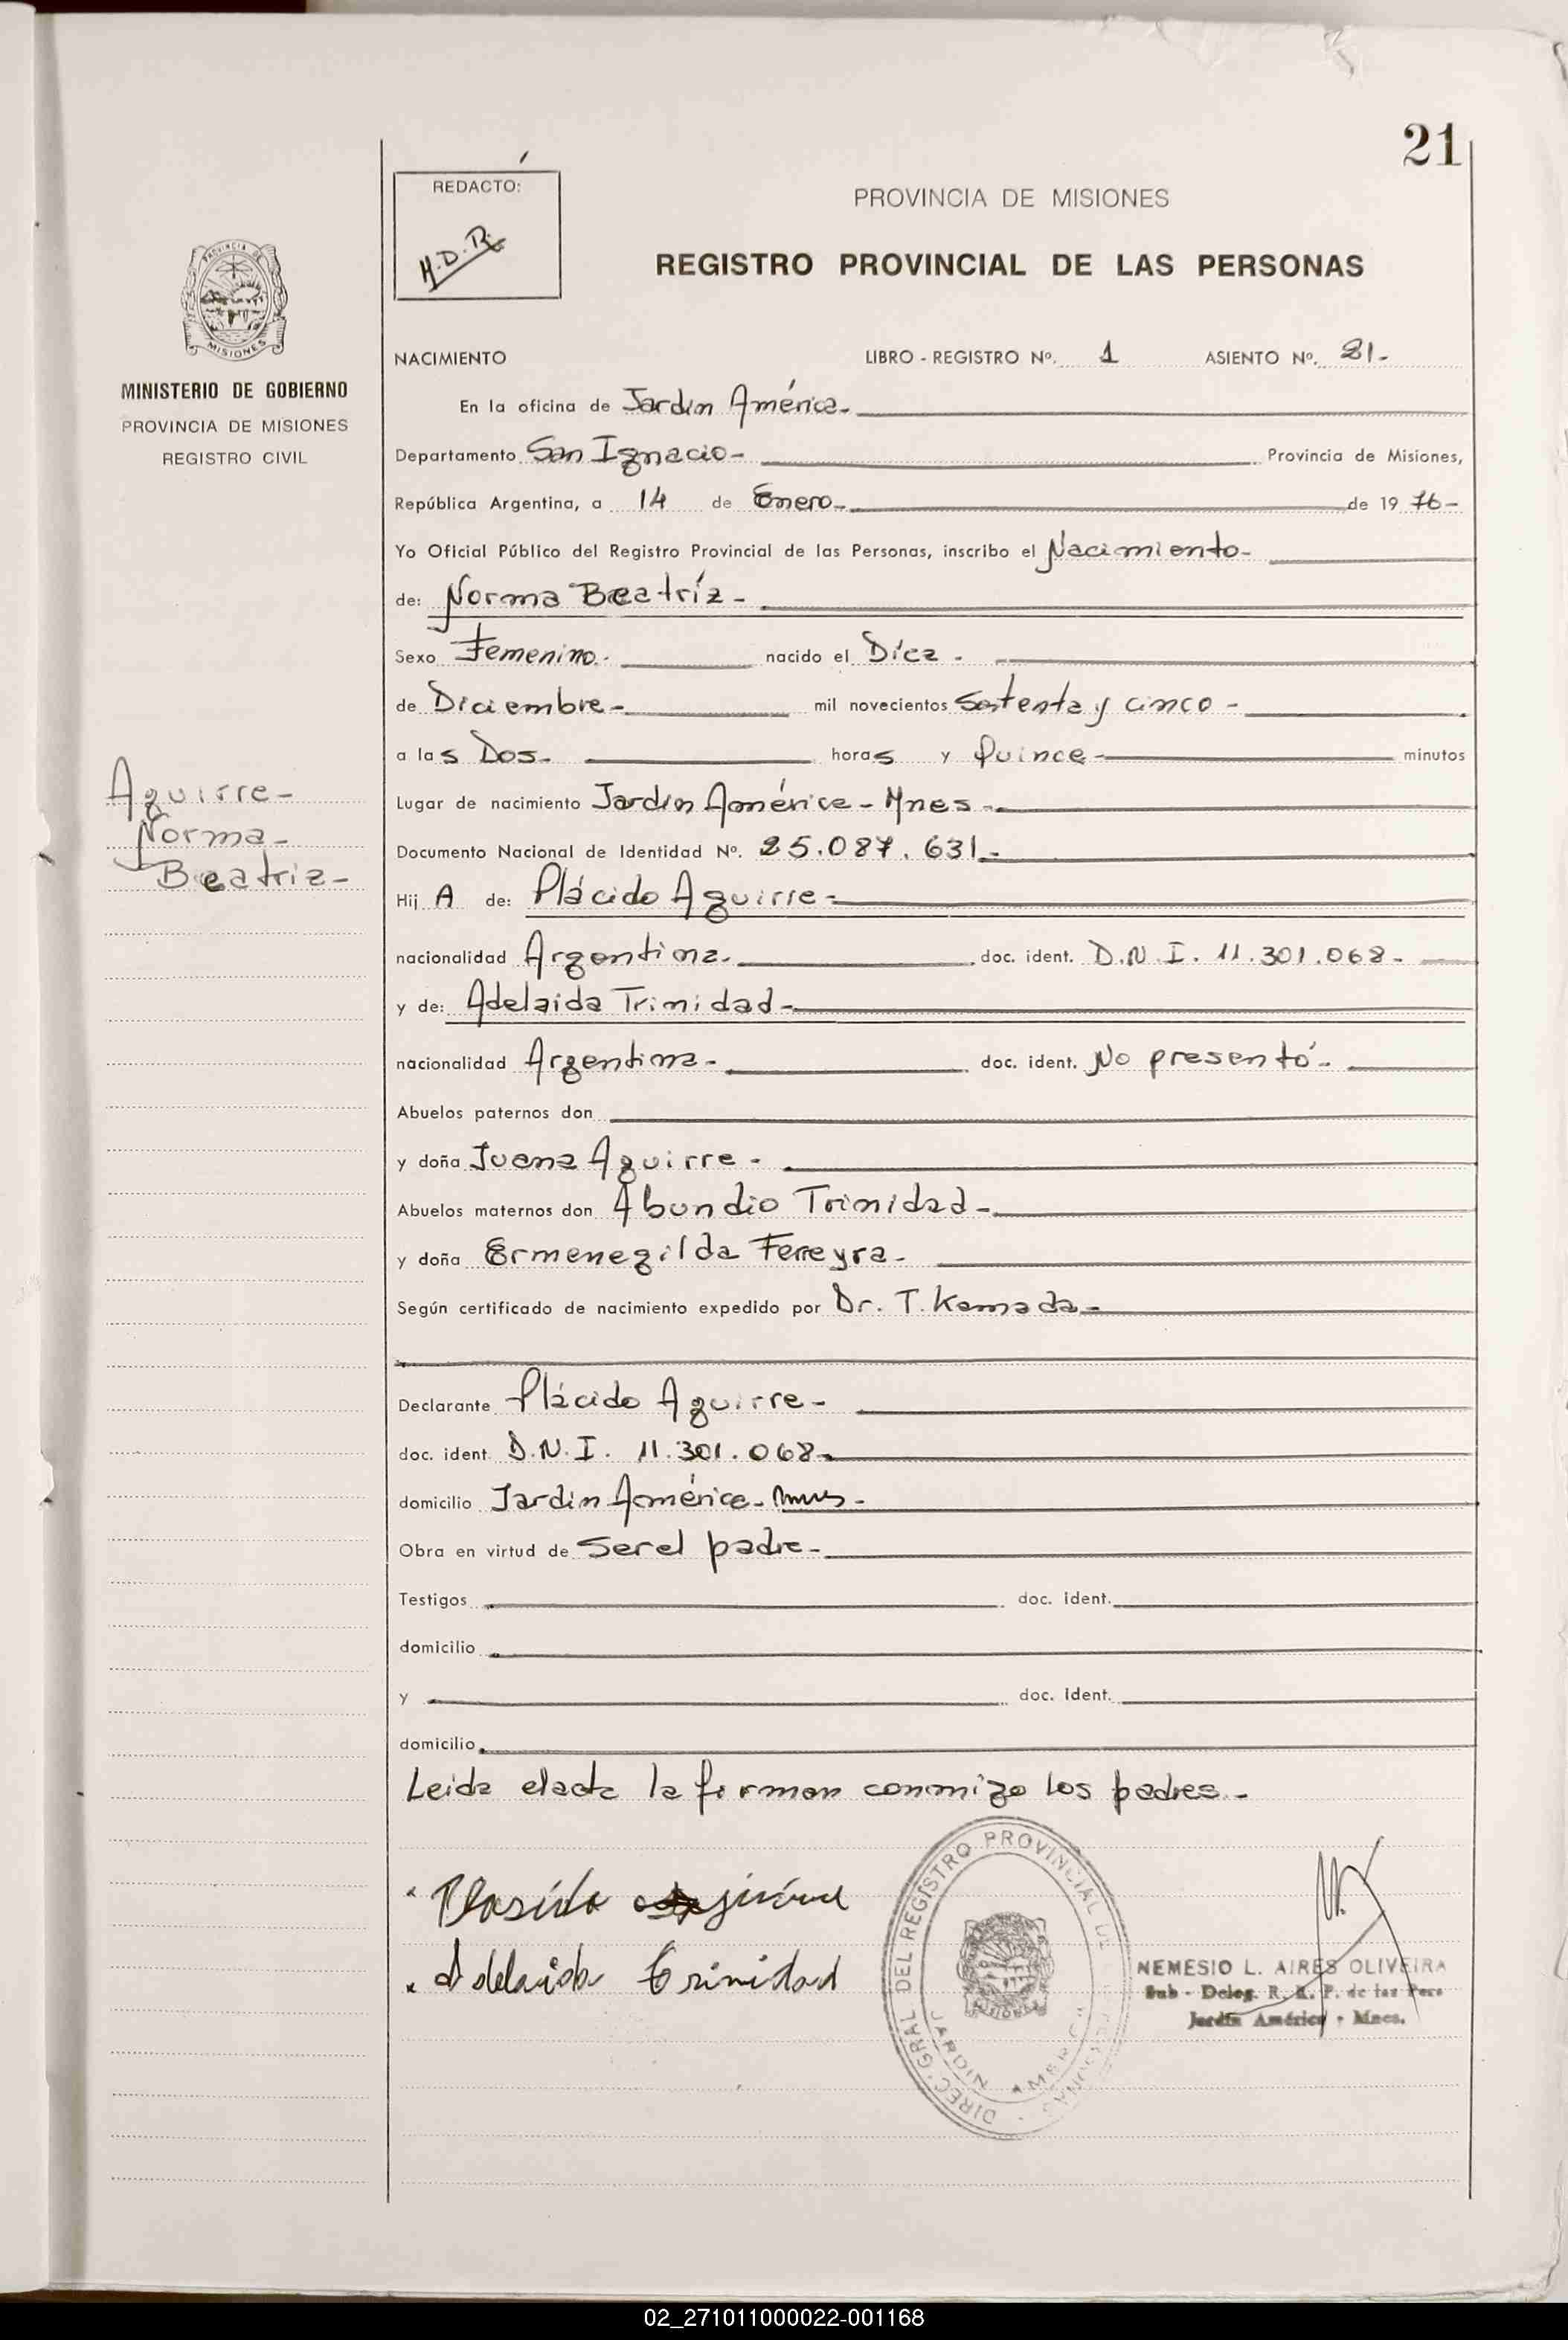 21
REDACTÓ:
H.D.R.
PROVINCIA DE MISIONES
REGISTRO PROVINCIAL DE LAS PERSONAS
PROVINCIA DE
MISIONES
MINISTERIO DE GOBIERNO
PROVINCIA DE MISIONES
REGISTRO CIVIL
NACIMIENTO LIBRO - REGISTRO Nº. 1 ASIENTO Nº. 21-
En la oficina de Jardin América-
Departamento San Ignacio- Provincia de Misiones,
República Argentina, a 14 de Enero- de 19 76-
Yo Oficial Público del Registro Provincial de las Personas, inscribo el Nacimiento-
de: Norma Beatríz-
Sexo Femenino- nacido el Diez-
de Diciembre- mil novecientos Setenta y cinco-
a las Dos- horas y Quince- minutos
Lugar de nacimiento Jardin América - Mnes-
Documento Nacional de Identidad Nº. 25.087.631-
Aguirre-
Norma-
Beatriz-
Hij A de: Plácido Aguirre-
nacionalidad Argentina- doc. ident. D.N.I. 11.301.068-
y de: Adelaida Trinidad-
nacionalidad Argentina- doc. ident. No presentó-
Abuelos paternos don
y doña Juana Aguirre-
Abuelos maternos don Abundio Trinidad-
y doña Ermenegilda Ferreyra-
Según certificado de nacimiento expedido por Dr. T. Kamada-
Declarante Plácido Aguirre-
doc. ident. D.N.I. 11.301.068-
domicilio Jardin América- Mnes-
Obra en virtud de Ser el padre-
Testigos doc. ident.
domicilio
y doc. ident.
domicilio
Leida el acta la firman conmigo los padres-
Plasido
Adelaida trinidad
DIREC. GRAL DEL REGISTRO PROVINCIAL DE LAS PERSONAS
JARDIN AMERICA
MISIONES
NEMESIO L. AIRES OLIVEIRA
Sub - Deleg. R. P. de las Pers
Jardín América - Mnes.
02_271011000022-001168